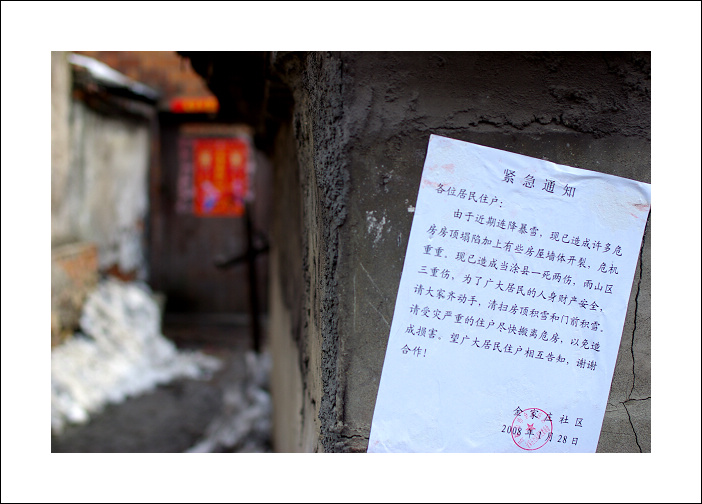 紧急通知
各位居民住户：
由于近期连降暴雪，现已造成许多危
房房顶塌陷加上有些房屋墙体开裂，危机
重重。现已造成当涂县一死两伤，雨山区
三重伤，为了广大居民的人身财产安全，
请大家齐动手，清扫房顶积雪和门前积雪。
请受灾严重的住户尽快搬离危房，以免造
成损害。望广大居民住户相互告知，谢谢
合作！
金家庄社区
2008年1月28日